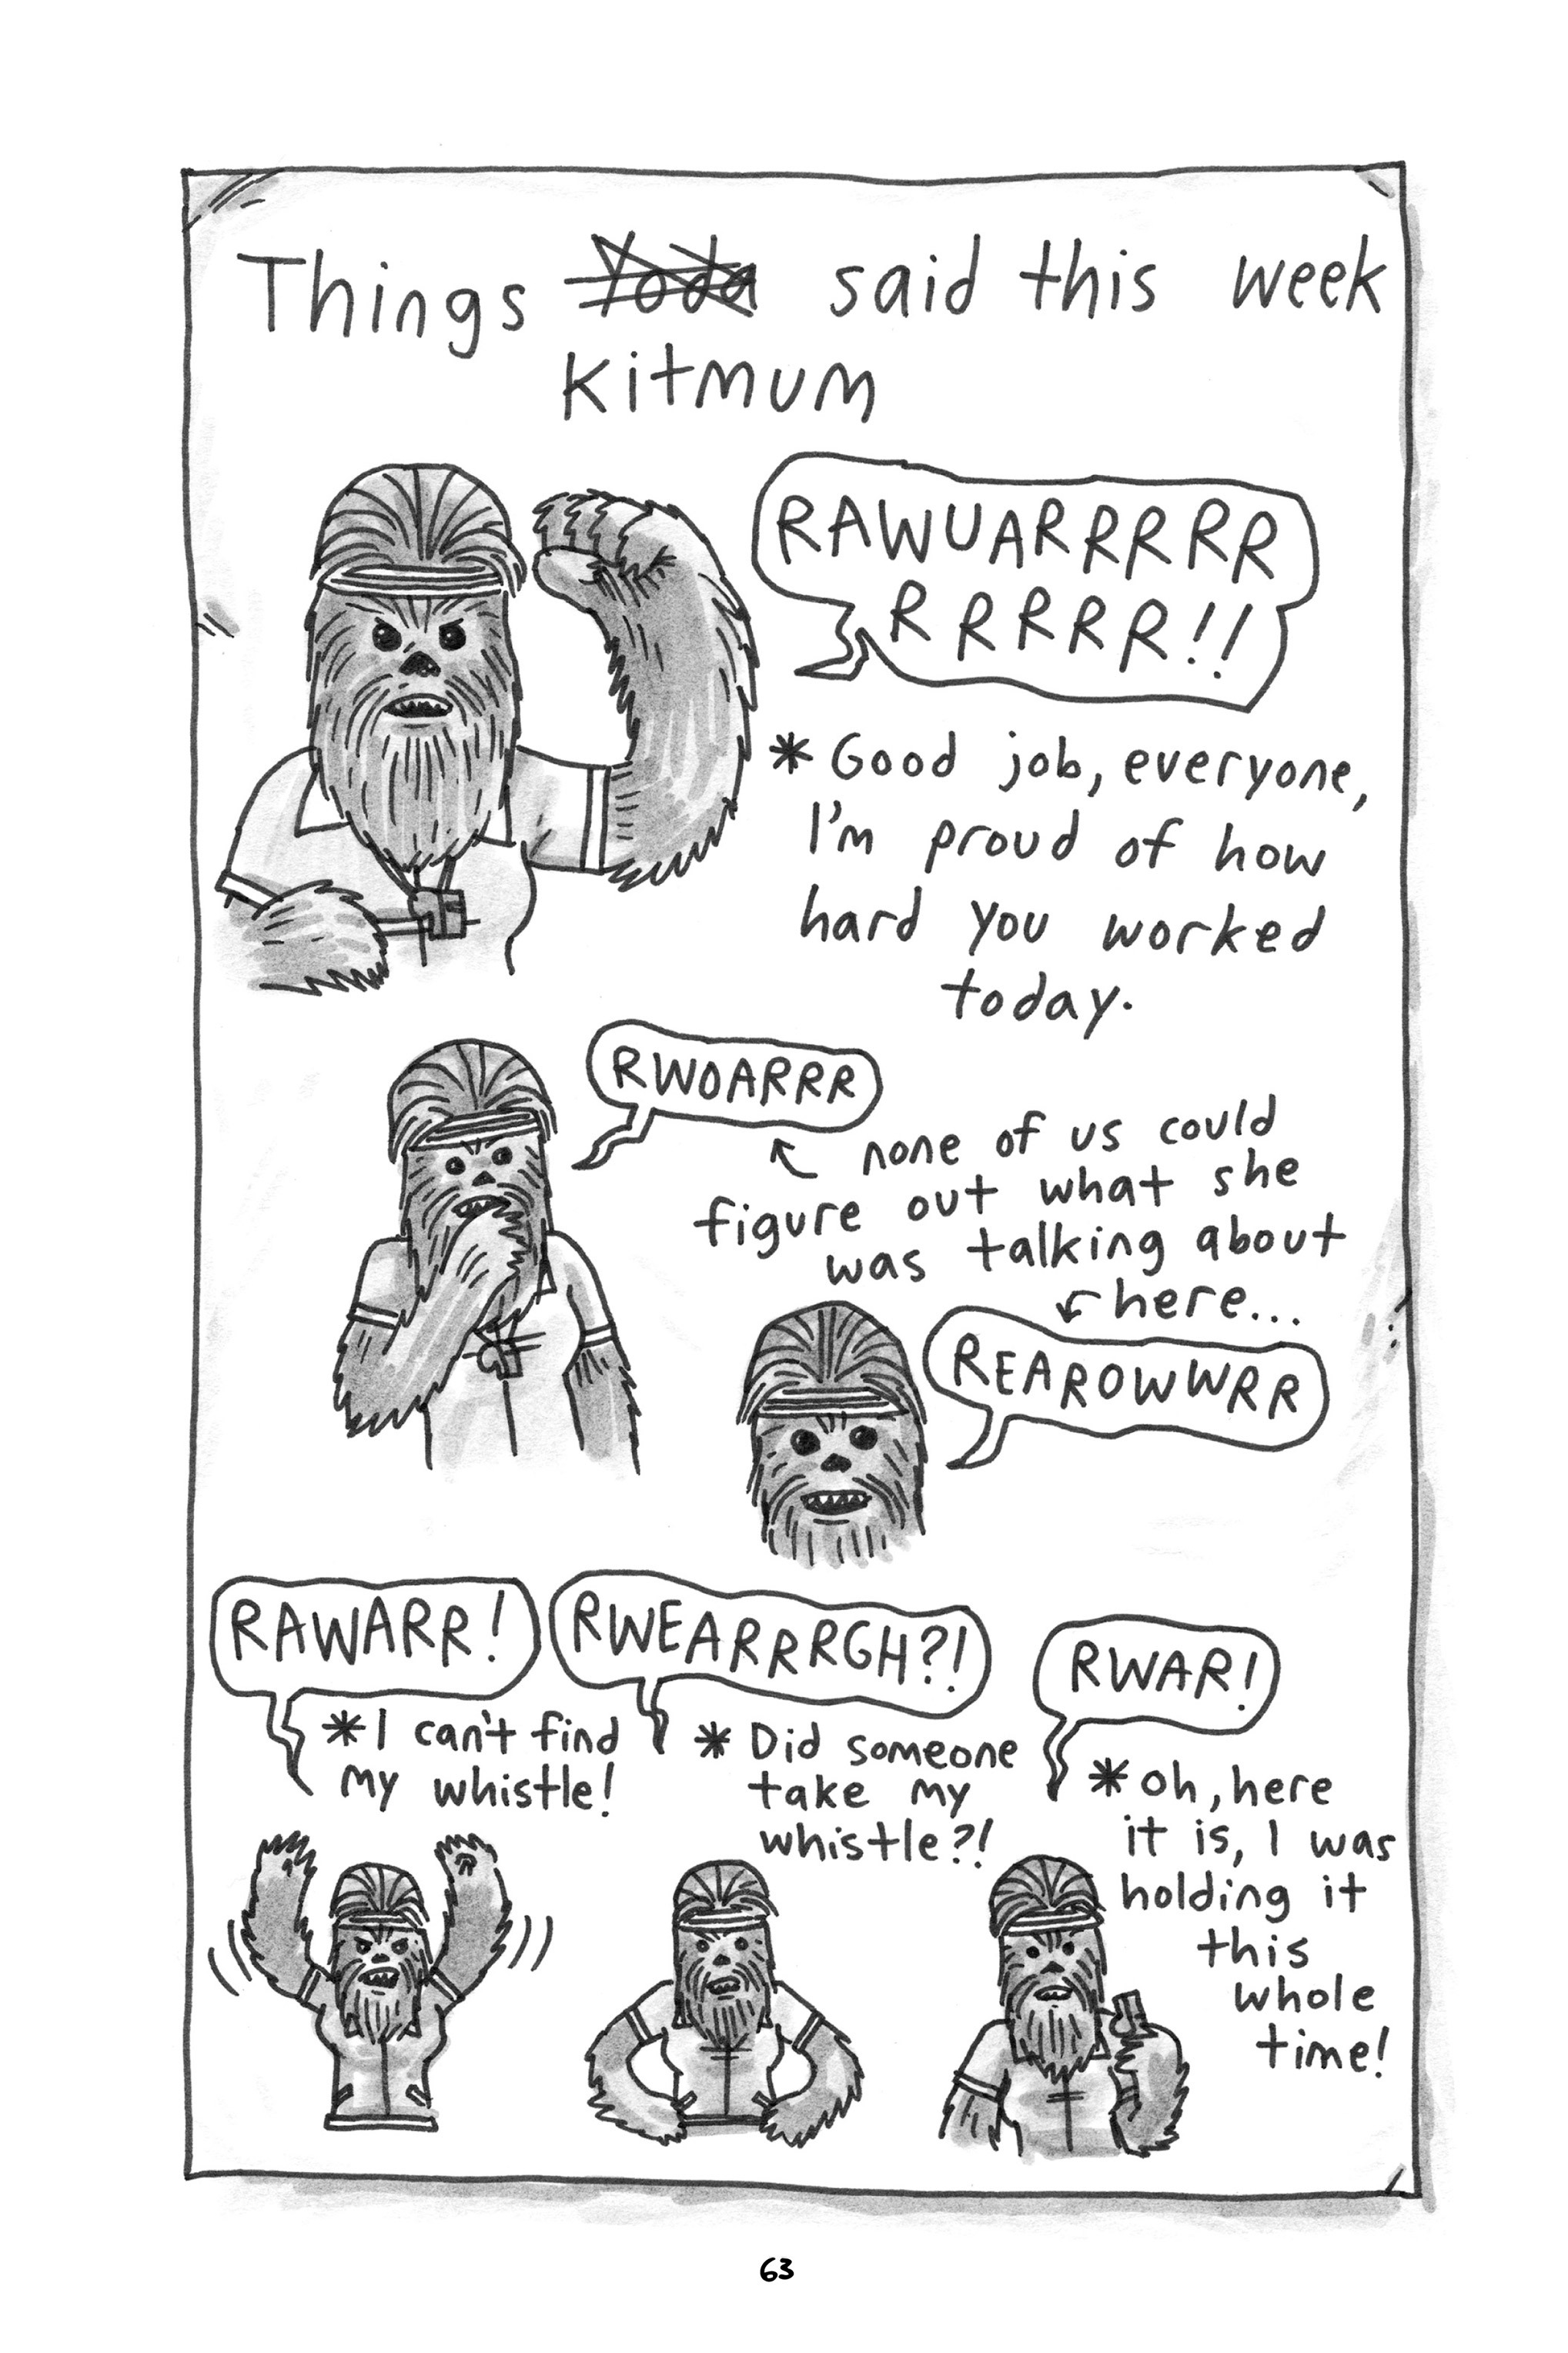 Things Yoda said this week
Kitmum
RAWUARRRRR
RRRRR!!
* Good job, everyone,
I'm proud of how
hard you worked
today.
RWOARRR
none of us could
figure out what she
was talking about
here...
REAROWWRR
RAWARR!
* I can't find
my whistle!
RWEARRRGH?!
* Did someone
take my
whistle?!
RWAR!
* oh, here
it is, I was
holding it
this
whole
time!
63